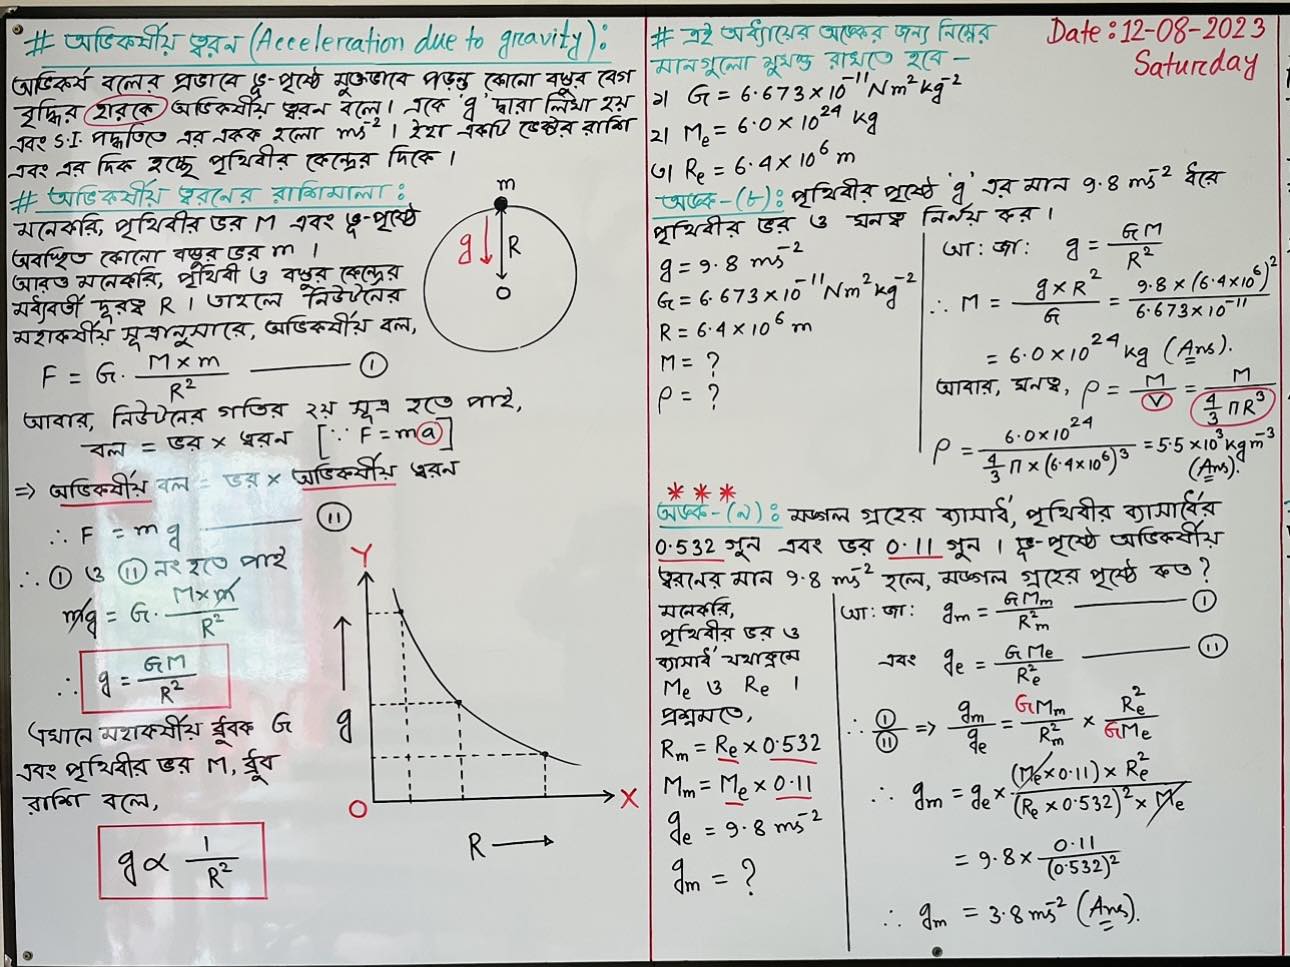 # অভিকর্ষীয় ত্বরন (Acceleration due to gravity):
অভিকর্ষ বলের প্রভাবে ভূ-পৃষ্ঠে মুক্তভাবে পড়ন্ত কোনো বস্তুর বেগ
বৃদ্ধির হারকে অভিকর্ষীয় ত্বরন বলে। একে 'g' দ্বারা লিখা হয়
এবং S.I. পদ্ধতিতে এর একক হলো ms⁻²। ইহা একটি ভেক্টর রাশি
এবং এর দিক হচ্ছে পৃথিবীর কেন্দ্রের দিকে।
# অভিকর্ষীয় ত্বরনের রাশিমালা:
মনেকরি, পৃথিবীর ভর M এবং ভূ-পৃষ্ঠে
অবস্থিত কোনো বস্তুর ভর m ।
আরও মনেকরি, পৃথিবী ও বস্তুর কেন্দ্রের
মধ্যবর্তী দূরত্ব R । তাহলে নিউটনের
মহাকর্ষীয় সূত্রানুসারে, অভিকর্ষীয় বল,
m
g
R
O
F = G. M×m/R² —— Ⓘ
আবার, নিউটনের গতির ২য় সূত্র হতে পাই,
বল = ভর × ত্বরন [∵ F = ma]
⇒ অভিকর্ষীয় বল = ভর × অভিকর্ষীয় ত্বরন
∴ F = mg —— ⓘⓘ
∴ Ⓘ ও ⓘⓘ নং হতে পাই
mg = G. M×m/R²
∴ g = GM/R²
এখানে মহাকর্ষীয় ধ্রুবক G
এবং পৃথিবীর ভর M, ধ্রুব
রাশি বলে,
g ∝ 1/R²
Y
g
O
X
R →
# এই অধ্যায়ের অংকের জন্য নিম্নের
মানগুলো মুখস্ত রাখতে হবে –
Date: 12-08-2023
Saturday
১। G = 6.673×10⁻¹¹ Nm²kg⁻²
২। Me = 6.0×10²⁴ kg
৩। Re = 6.4×10⁶ m
অংক-(৮): পৃথিবীর পৃষ্ঠে 'g' এর মান 9.8 ms⁻² ধরে
পৃথিবীর ভর ও ঘনত্ব নির্নয় কর।
g = 9.8 ms⁻²
G = 6.673×10⁻¹¹ Nm²kg⁻²
R = 6.4×10⁶ m
M = ?
ρ = ?
আ: জা: g = GM/R²
∴ M = g×R²/G = 9.8×(6.4×10⁶)²/6.673×10⁻¹¹
= 6.0×10²⁴ kg (Ans).
আবার, ঘনত্ব, ρ = M/V = M/(4/3 πR³)
ρ = 6.0×10²⁴/(4/3 π×(6.4×10⁶)³) = 5.5×10³ kgm⁻³
(Ans).
***
অংক-(৯): মঙ্গল গ্রহের ব্যাসার্ধ, পৃথিবীর ব্যাসার্ধের
0.532 গুন এবং ভর 0.11 গুন । ভূ-পৃষ্ঠে অভিকর্ষীয়
ত্বরনের মান 9.8 ms⁻² হলে, মঙ্গল গ্রহের পৃষ্ঠে কত?
মনেকরি,
পৃথিবীর ভর ও
ব্যাসার্ধ যথাক্রমে
Me ও Re ।
প্রশ্নমতে,
Rm = Re × 0.532
Mm = Me × 0.11
ge = 9.8 ms⁻²
gm = ?
আ: জা: gm = GMm/Rm² —— Ⓘ
এবং ge = GMe/Re² —— ⓘⓘ
∴ Ⓘ/ⓘⓘ ⇒ gm/ge = GMm/Rm² × Re²/GMe
∴ gm = ge × (Me×0.11)×Re²/(Re×0.532)²×Me
= 9.8 × 0.11/(0.532)²
∴ gm = 3.8 ms⁻² (Ans).